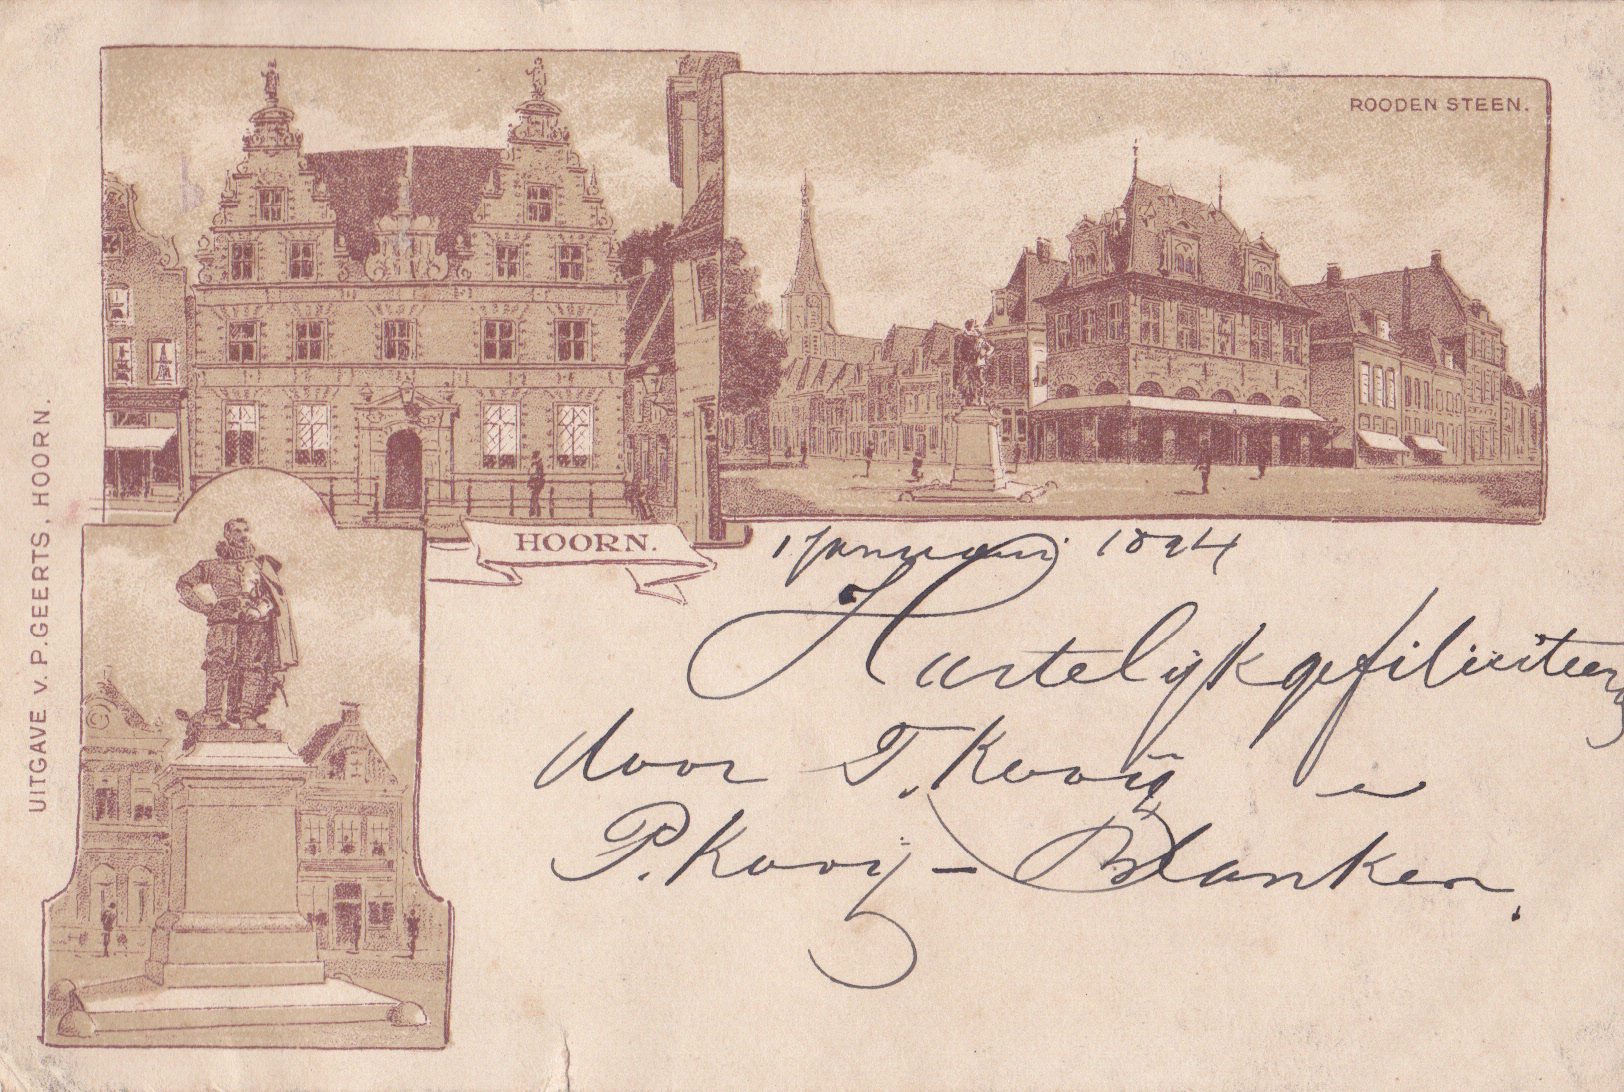 ROODEN STEEN.
HOORN.
UITGAVE v. P. GEERTS, HOORN.
1 Januari 1894
Hartelijk gefiliciteerd
door T. Kooij e
P. Kooij - Blanken.